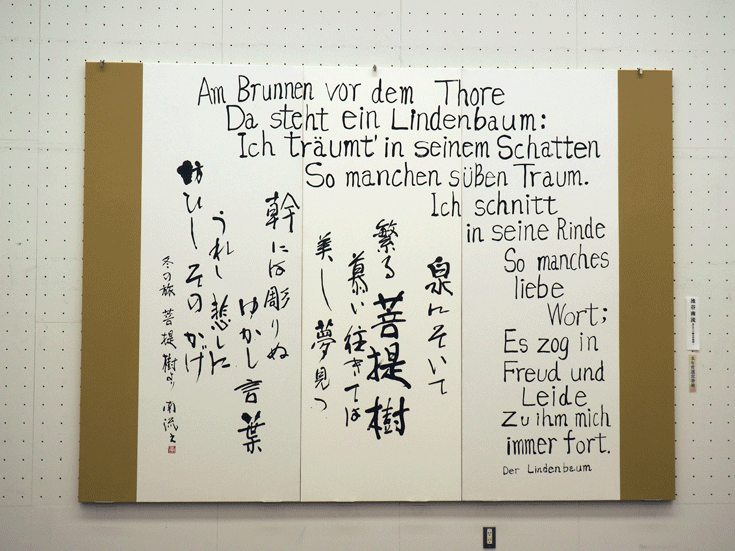 Am Brunnen vor dem Thore
Da steht ein Lindenbaum:
Ich träumt' in seinem Schatten
So manchen süßen Traum.
Ich schnitt
in seine Rinde
So manches
liebe
Wort;
Es zog in
Freud und
Leide
Zu ihm mich
immer fort.
Der Lindenbaum
泉にそいて
繁る菩提樹
慕い往きては
美し夢見つ
幹には彫りぬ
ゆかし言葉
うれし悲しに
訪ひしそのかげ
冬の旅 菩提樹より 南流